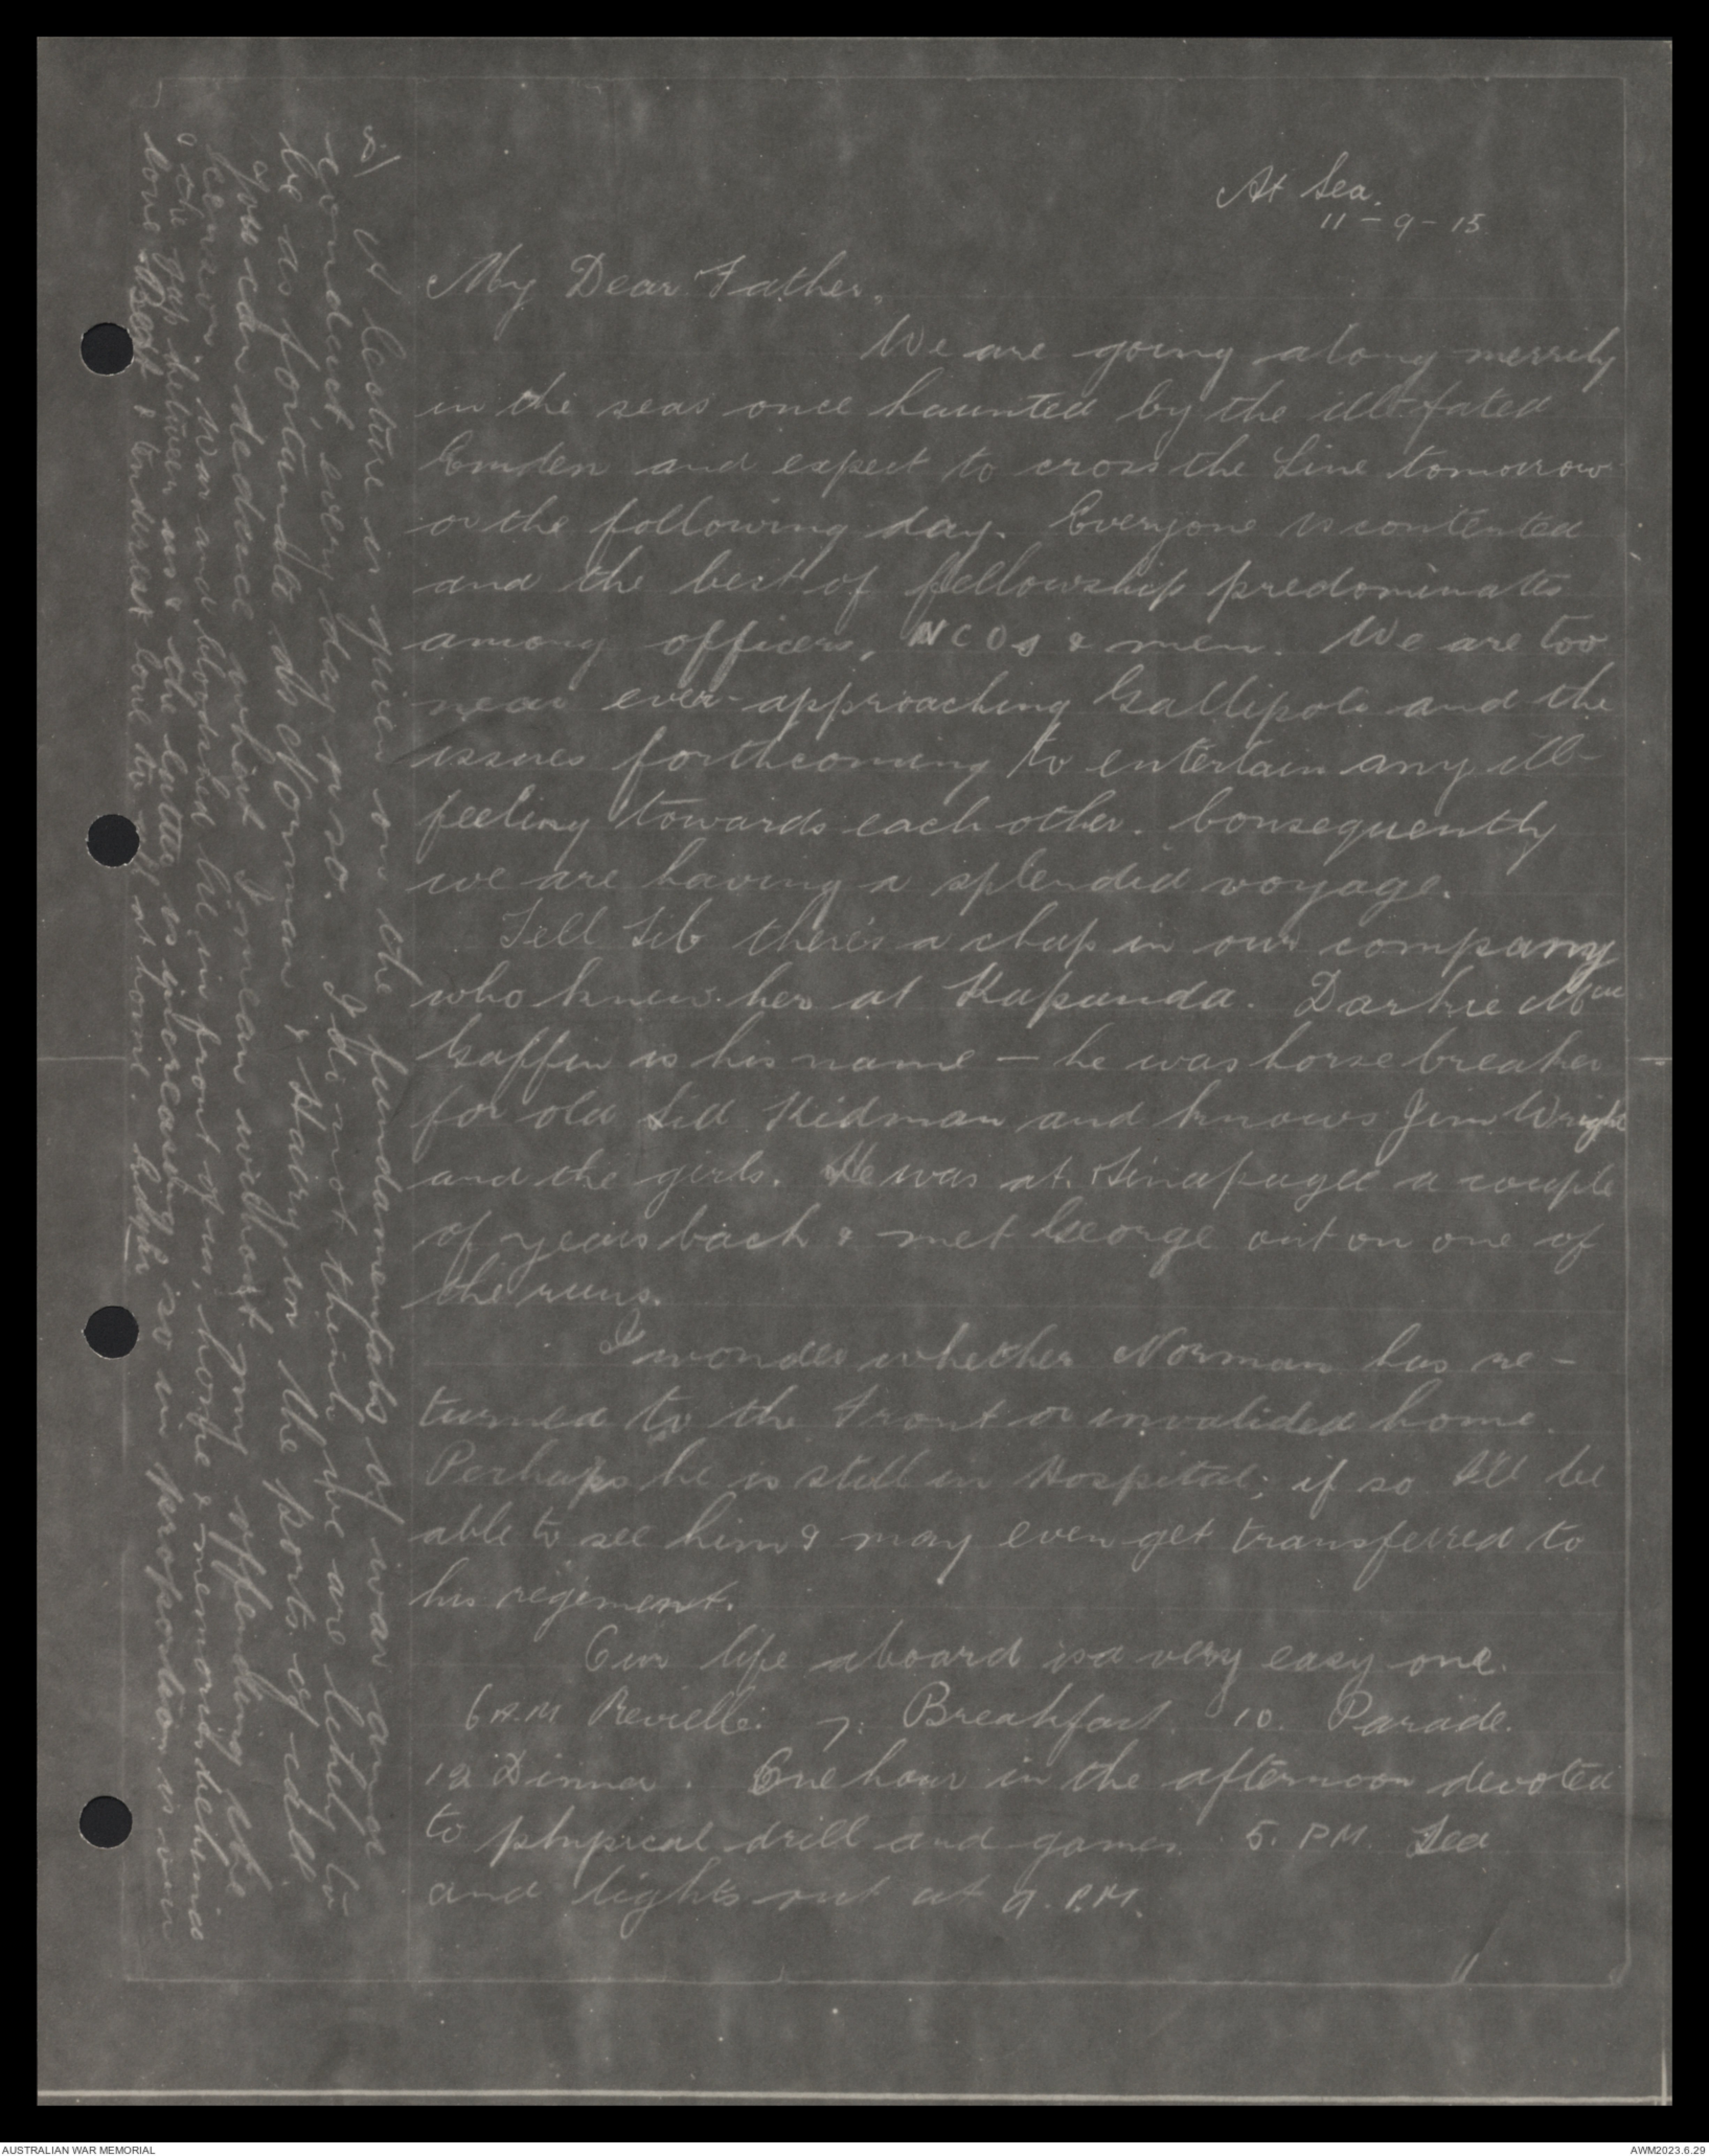 At Sea.
11-9-15
My Dear Father,
We are going along merrily
in the seas once haunted by the ill-fated
Emden and expect to cross the Line tomorrow
or the following day. Everyone is contented
and the best of fellowship predominates
among officers, NCOs & men. We are too
near ever-approaching Gallipoli and the
issues forthcoming to entertain any ill-
feeling towards each other. Consequently
we are having a splendid voyage.
Tell Sib there's a chap in our company
who knew her at Kapunda. Darkie
Gaffin is his name - he was horse breaker
for old Sid Kidman and knows Jim Wright
and the girls. He was at a couple
of years back & met George out on one of
the runs.
I wonder whether Norman has re-
turned to the Front or invalided home.
Perhaps he is still in Hospital; if so I'll be
able to see him & may even get transferred to
his regiment.
Our life aboard is a very easy one.
6 A.M Reveille. 7. Breakfast. 10. Parade.
12 Dinner. One hour in the afternoon devoted
to physical drill and games. 5. PM. Tea
and lights out at 9. P.M.
2/
A lecture is given on the fundamentals of war and
conduct every day or so. I do not think we are likely to
be as fortunate as Norman & Harry in the ports of call
you can deduce I mean without my offending the
censor. War and bloodshed lie in front of us, home & remembrance
the gap between us & the latter is increasing so in proportion is our
love. Best & tenderest love to all at home.
AUSTRALIAN WAR MEMORIAL
AWM2023.6.29